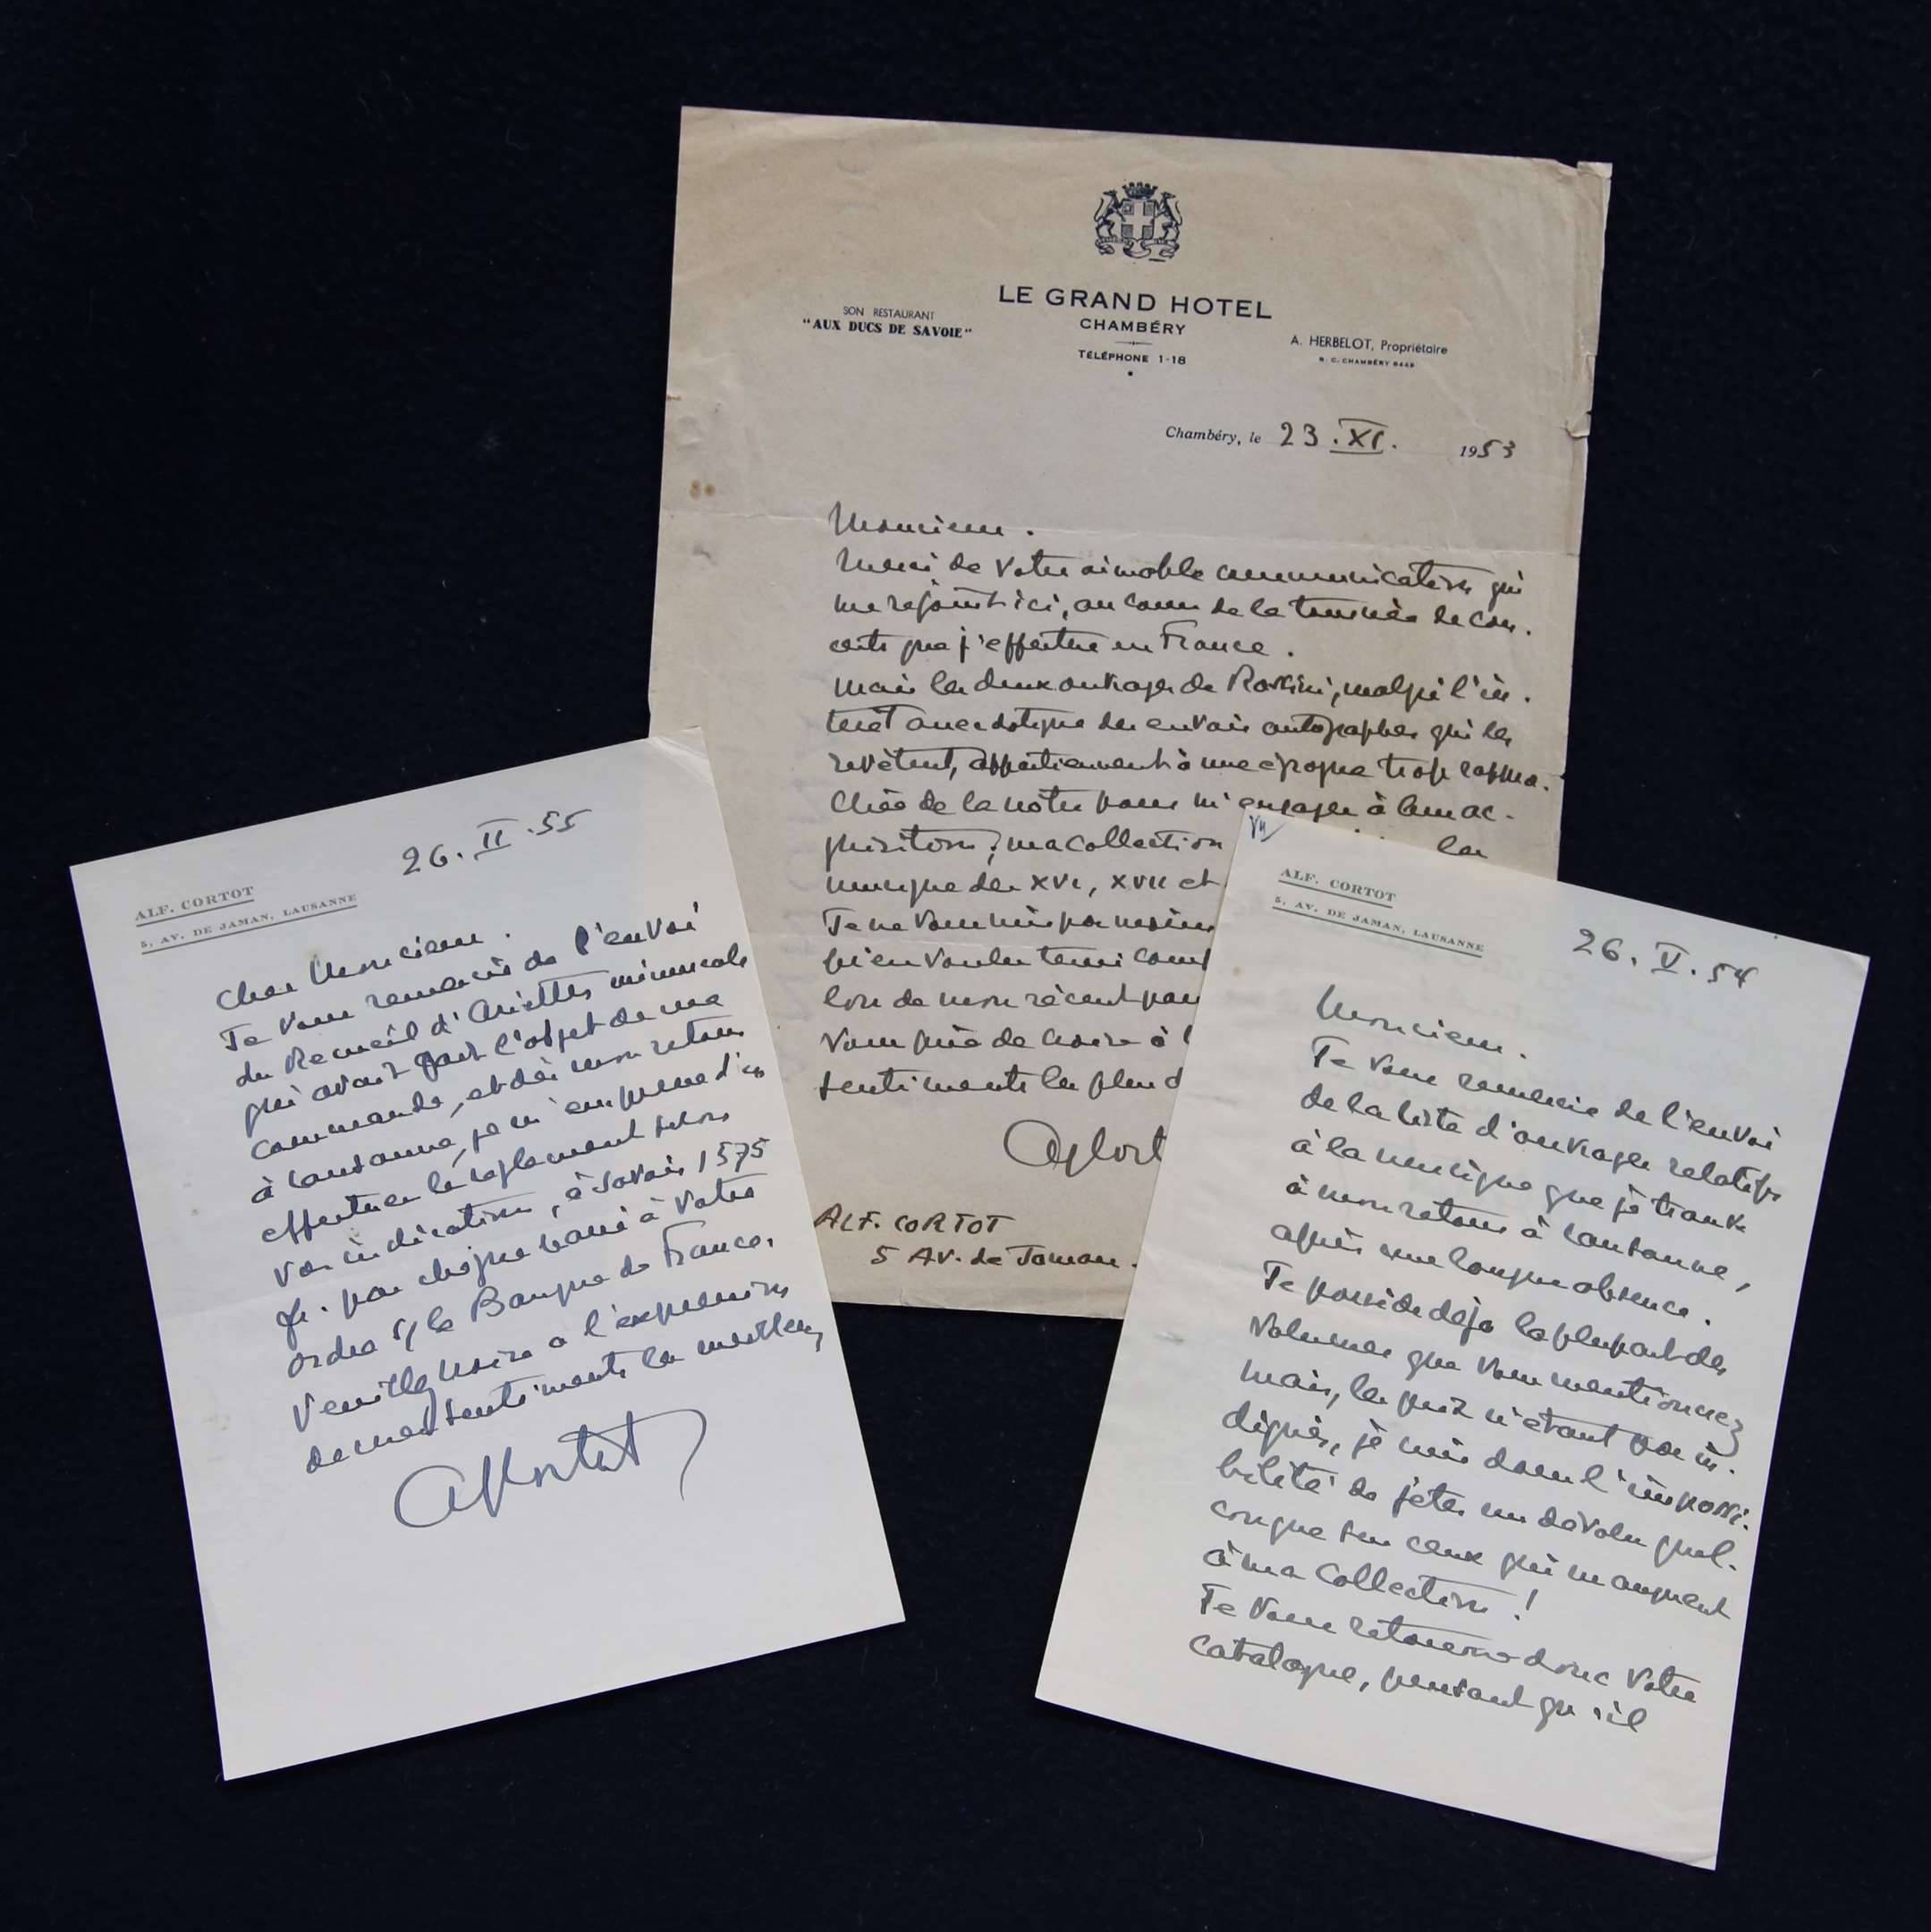 LE GRAND HOTEL
CHAMBÉRY
TÉLÉPHONE 1-18
SON RESTAURANT
"AUX DUCS DE SAVOIE"
A. HERBELOT, Propriétaire
R. C. CHAMBÉRY
Chambéry, le 23.XI. 1953
Monsieur.
Merci de votre aimable communication qui
me rejoint ici, au cours de la tournée de con.
certs que j'effectue en France.
Mais les deux ouvrages de Rossini, malgré l'in.
térêt anecdotique des envois autographes qui les
revêtent, appartiennent à une époque trop rappro.
chée de la nôtre pour m'engager à leur ac-
quisition; ma collection les
musique des XVI, XVII et
Je ne vous suis pas moins
bien voulu tenir
lors de mon récent
vous prie de croire à
sentiments les plus d
ACort
ALF. CORTOT
5 AV. de Jaman.
ALF. CORTOT
5, AV. DE JAMAN, LAUSANNE
26.II.55
Cher Monsieur.
Je vous remercie de l'envoi
du Recueil d'Ariettes
qui avait fait l'objet de ma
commande, et dès mon retour
à Lausanne, je m'empresse d'en
effectuer le règlement selon
vos indications, à savoir 1575
fr. par chèque barré à votre
ordre s/ la Banque de France.
Veuillez croire à l'expression
de mes sentiments les meilleurs
A Cortot
ALF. CORTOT
5, AV. DE JAMAN, LAUSANNE
26.V.54
Monsieur.
Je vous remercie de l'envoi
de la liste d'ouvrages relatifs
à la musique que je trouve
à mon retour à Lausanne,
après une longue absence.
Je possède déjà la plupart des
volumes que vous mentionnez
mais, les prix n'étant pas in.
diqués, je suis dans l'impossi.
bilité de jeter un dévolu quel-
conque sur ceux qui manquent
à ma collection!
Je vous retourne donc votre
catalogue, pensant qu'il